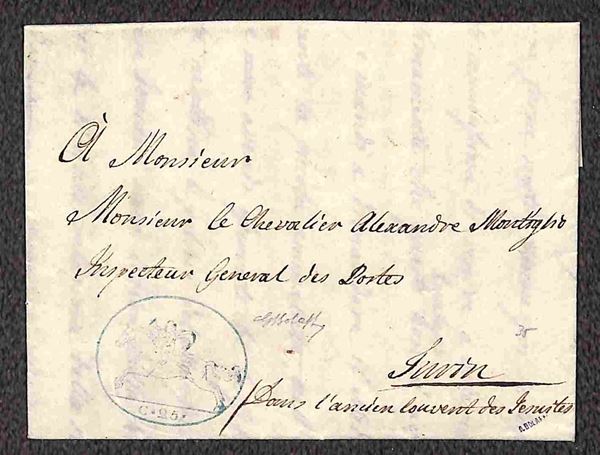 À Monsieur
Monsieur le Chevalier Alexandre Montiglio
Inspecteur General des Postes
35
Turin
Dans l'ancien Couvent des Jesuites
C. 25.